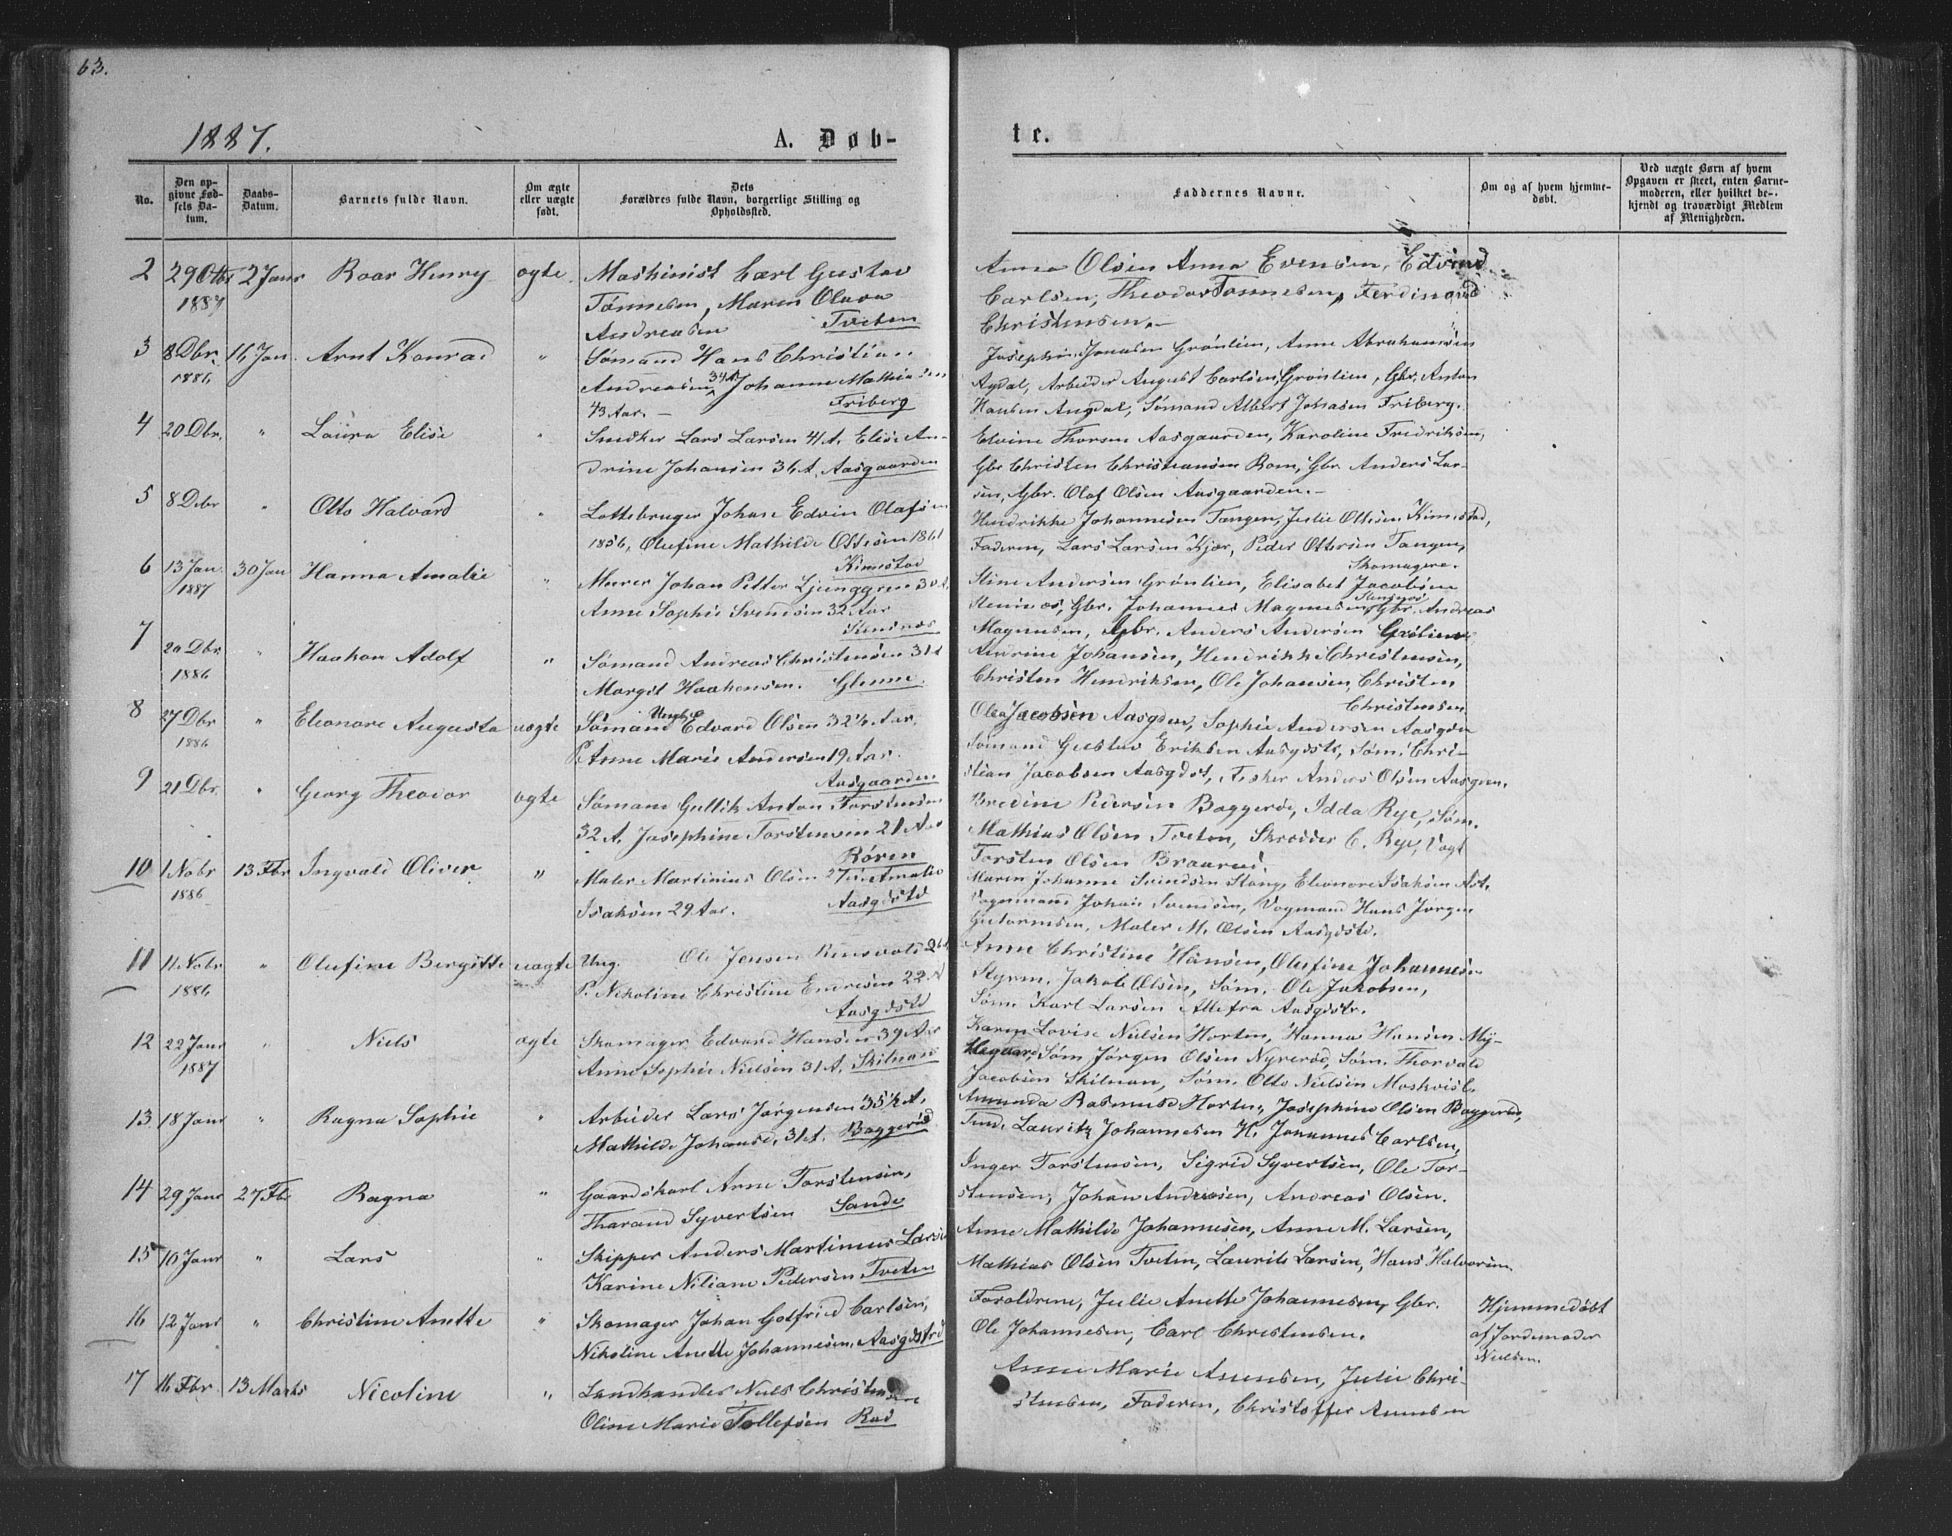 63.
1887.
A. Døb-
te.
No.
Den op-
givne Fød-
sels Da-
tum.
Daabs-
Datum.
Barnets fulde Navn.
Om ægte
eller uægte
født.
Dets
Forældres fulde Navn, borgerlige Stilling og
Opholdssted.
Faddernes Navne.
Om og af hvem hjemme-
døbt.
Ved uægte Børn af hvem
Opgaven er skeet, enten Barne-
moderen, eller hvilket be-
kjendt og troværdigt Medlem
af Menigheden.
2 2 Janr Roar Henry ægte Maskinist Carl Gustav
Tønnesen, Maren Olava
Andreasen Tveten
Anna Olsen Anna Evensen, Edvind
Carlsen, Theodor Tønnesen, Ferdinand
Christensen.
3 8 Dbr. 1886 16 Jan. Arnt Konrad " Sømand Hans Christian
Andreasen 34 A Johanne Mathia
43 Aar. Friberg
Josephine Jonasen Grønlien, Anne Abrahamsen
Agdal, Arbeider August Carlsen, Grønlien, Gbr. Anton
Hansen Augdal, Sømand Albert Johasen Friberg.
4 20 Dbr. " Laura Elise " Snedker Lars Larsen 41 A. Elise An-
drine Johansen 36 A. Aasgaarden
Elvine Thorsen Aasgaarden, Karoline Fredriksen,
Gbr Christen Christiansen Rom, Gbr. Anders Lar-
sen, Gbr. Olaf Olsen Aasgaarden.
5 8 Debr " Otto Halvard " Johans Edvin Olafsen
1856, Olufine Mathilde Ottesen 1861
Kimestad
Hendrikke Johannesen Tangen, Julie Ottesen Kimestad,
Faderen, Lars Larsen Kjær, Peder Ottersen Tangen,
6 13 Jan. 1887 30 Jan Hanna Amalie " Murer Johan Petter Ljunggren 30 A,
Anne Sophie Svensen 32 Aar
Stensnæs
Skomagere.
Stine Andersen Grønlien, Elisabet Jacobsen
Stensnæs, Gbr. Johannes Magnusen, Gbr. Andreas
Magnusen, Gbr. Anders Andersen Grølien
7 20 Dbr 1886 " Haakon Adolf " Sømand Andreas Christensen 31 A
Margit Haakensen. Glenne.
Andrine Johansen, Hendrikke Christensen,
Christen Hendriksen, Ole Johansen, Christen
Christensen
8 27 Dbr 1886 " Eleonore Augusta uægte Sømand Ungk. Edvard Olsen 32 1/2 Aar.
P. Anne Marie Andersen 19 Aar.
Aasgaarden
Olea Jacobsen Aasgden, Sophie Andersen Aasgden
Sømand Gustav Eriksen Aasgdstr, Søm. Chri-
stian Jacobsen Aasgdst, Fisker Anders Olsen Aasgren.
9 21 Dbr. " Georg Theodor ægte Sømand Gullik Anton Torstensen
32 A. Josephine Torstensen 21 Aar
Røren
Bredine Pedersen Baggerød, Idda Rye, Søm.
Mathias Olsen Tveten, Skrædder C. Rye, Vogt
Torsten Olsen Braarud
10 1 Nobr 1886 13 Fbr Ingvald Oliver " Maler Martinius Olsen Amalie
Isaksen 29 Aar. Aasgdstr
Maren Johanne Svendsen Stang, Eleonore Isaksen Ast.
Vognmand Johan Svendsen, Vogmand Hans Jørgen
Gutormsen, Maler M. Olsen Aasgdstr.
11 11 Nobr 1886 " Olufine Bergitte uægte Ung. Ole Jensen
P. Nikoline Christine Endresen 22 A
Aasgdstr
Anne Christine Hansen, Olufine Johannesen
Styrm. Jakob Olsen, Søm. Ole Jakobsen,
Søm. Karl Larsen Alle fra Aasgdstr.
12 22 Janr 1887 " Niels ægte Skomager Edvard Hansen 39 Aar
Anne Sophie Nielsen 31 A. Skilnan
Karen Lovise Nielsen Horten, Hanna Hansen My-
klegaard, Søm Jørgen Olsen Nyrerød, Søm. Thorvald
Jacobsen Skilnan, Søm. Otto Nielsen Moskvist.
13 18 Janr " Ragna Sophie " Arbeider Lars Jørgensen 35 1/2 A.
Mathilde Johanse, 31 A. Baggerød
Amunda Rasmusd Horten, Josephine Olsen Baggerød,
Lauritz Johannesen H. Johannes Carlsen,
14 29 Janr 27 Fbr Ragna " Gaardskarl Arne Torstensen,
Tharand Syvertsen Sande
Inger Torstensen, Sigrid Syvertsen, Ole Tor-
stensen, Johan Andresen, Andreas Olsen.
15 10 Janr " Lars " Skipper Anders Martinius Larsen
Karine Niliane Pedersen Tveten
Anne Mathilde Johannesen, Anne M. Larsen,
Mathias Olsen Tveten, Laurits Larsen, Hans Halvorsen
16 12 Janr " Christine Anette " Skomager Johan Gotfried Carlsen,
Nikoline Anette Johannesen, Aasgdstrd
Forældrene, Julie Anette Johannesen, Gbr.
Ole Johannesen, Carl Christensen.
Hjemmedøbt
af Jordemoder
Nielsen.
17 16 Fbr. 13 Marts Nicoline " Landhandler Niels Christensen
Oline Marie Tollefsen Rød
Anne Marie Amundsen, Julie Chri-
stensen, Faderen, Christoffer Amundsen